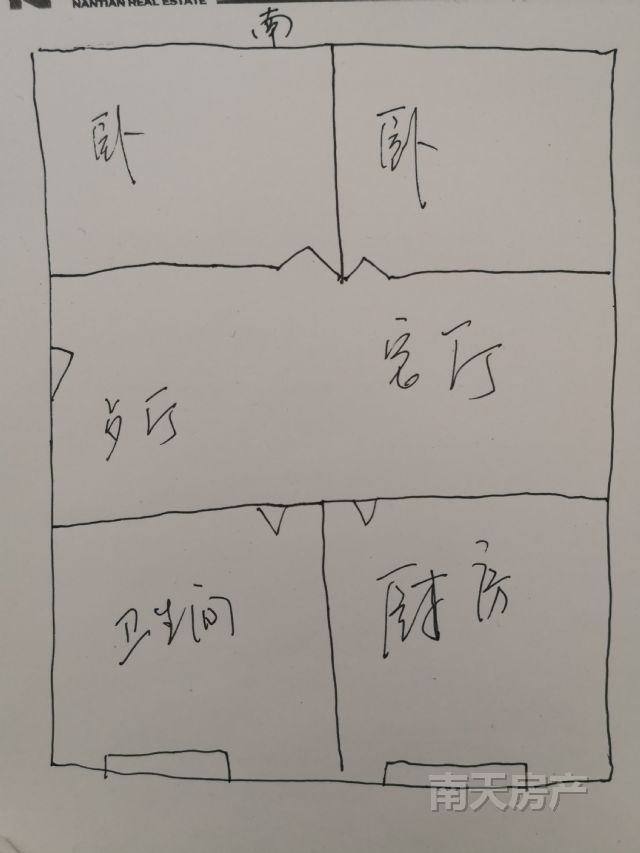 NANTIAN REAL ESTATE
南
卧
卧
客厅
歺厅
卫生间
厨房
南天房产